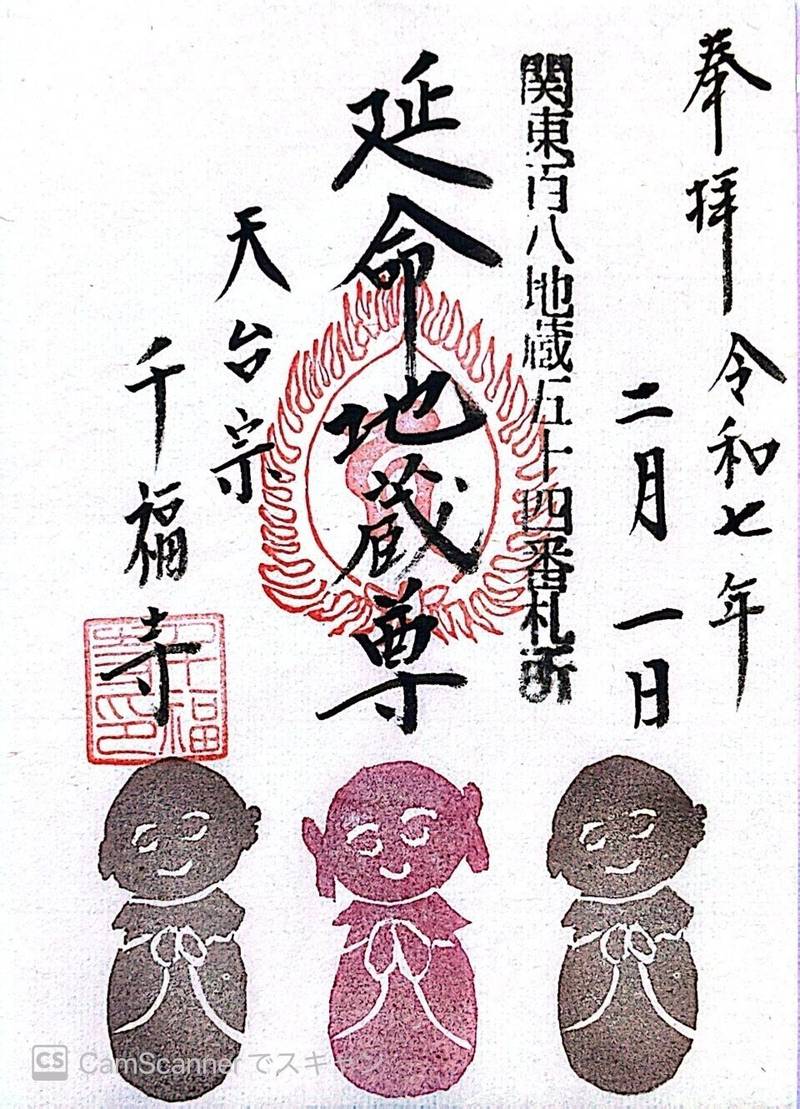 奉拝
令和七年
二月一日
関東百八地蔵五十四番札所
延命地蔵尊
天台宗
千福寺
千福寺印
CS CamScannerでスキャン